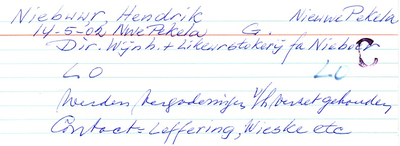 Niebuur, Hendrik Nieuwe Pekela
14-5-02 Nwe Pekela G.
Dir. Wijnh. + Likeurstokerij fa Nieboer C
LO LO
Werden vergaderingen v/h verzet gehouden
Contact = Leffering, Wieske etc